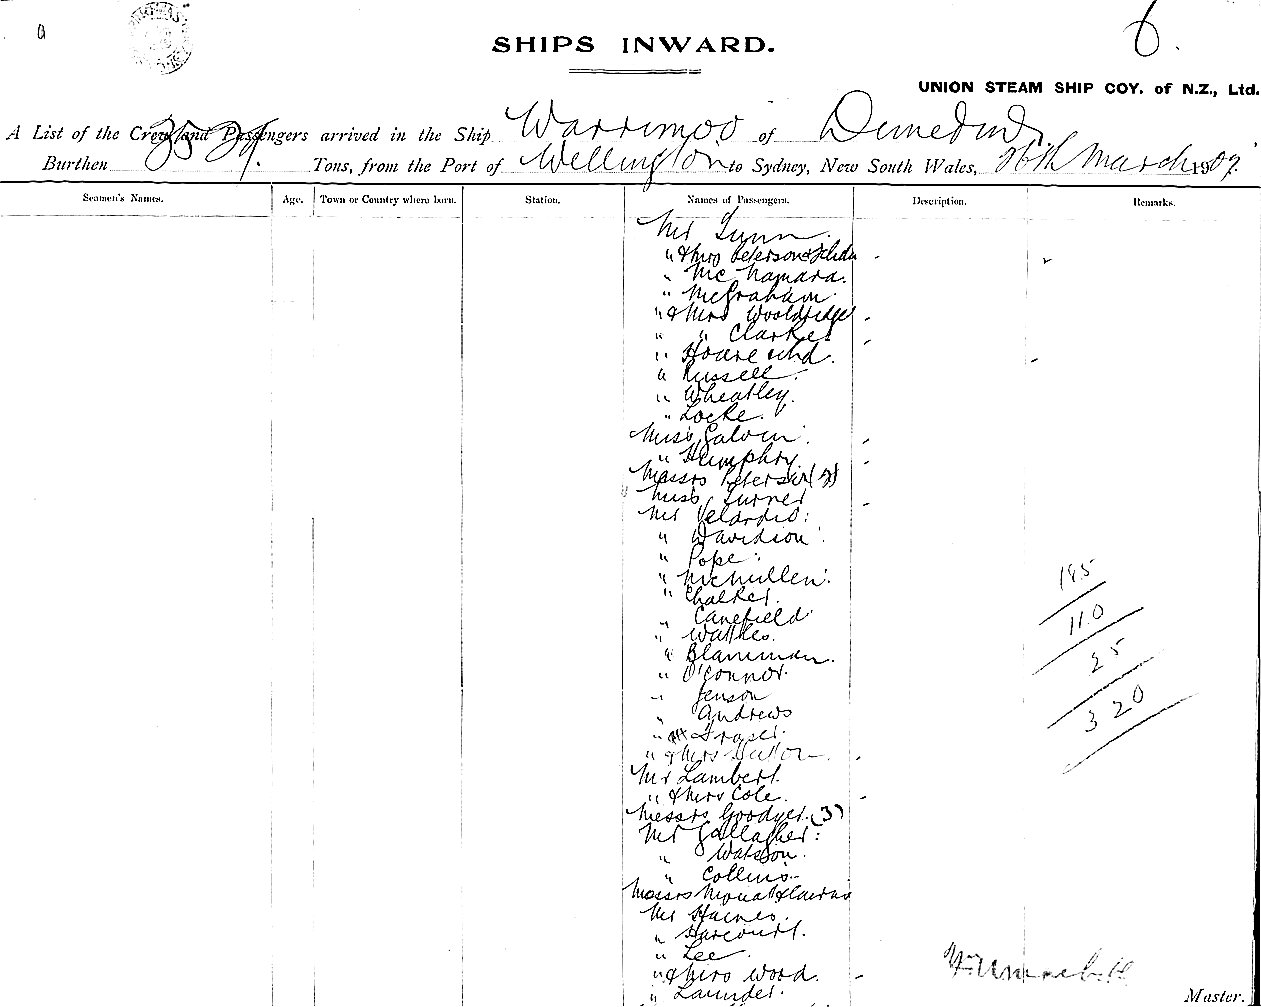 6.
SHIPS INWARD.
UNION STEAM SHIP COY. of N.Z., Ltd.
A List of the Crew and Passengers arrived in the Ship Warrimoo of Dunedin
Burthen Tons, from the Port of Wellington to Sydney, New South Wales, 26th March 1907.
Seamen's Names. Age. Town or Country where born. Station. Names of Passengers. Description. Remarks.
Mr Lynn.
" & Mrs Peterson &
" McNamara.
" McGraham.
" & Mrs Wooldridge
" " Clarke
" Hoare
" Russell.
" Wheatley.
" Locke.
Miss Galvin.
" Humphry.
Messrs Peterson (2)
Miss Turner
Mr Velardio:
" Davidson.
" Pope.
" McMullen.
" Chalker.
" Canefield
" Wattles.
"
" O'Connor.
" Jenson
" Andrews
" Fraser.
" & Mrs
Mr Lambert.
" & Mrs Cole.
Messrs Goodyer. (3)
Mr Gallagher:
" Watson.
" Collins
Messrs
Mr Haines.
" Harcourt.
" Lee
" & Mrs Wood.
" Launder.
195
110
25
320
Master.